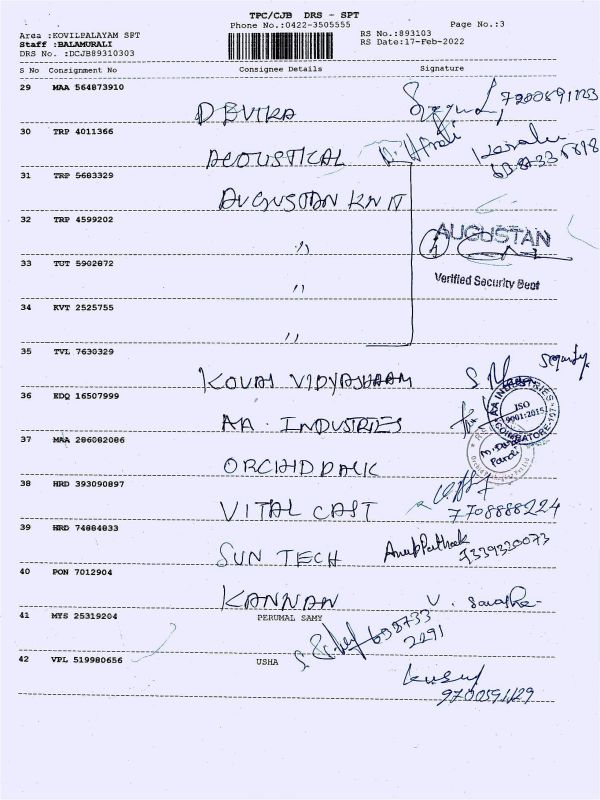 TPC/CJB DRS - SPT
Phone No.:0422-3505555
Page No.:3
Area :KOVILPALAYAM SPT
RS No.:893103
Staff :BALAMURALI
RS Date:17-Feb-2022
DRS No. :DCJB89310303
S No Consignment No Consignee Details Signature
29 MAA 564873910
DEVIKA
30 TRP 4011366
ACOUSTICAL
31 TRP 5683329
AUGUSTAN KNIT
32 TRP 4599202
〃
AUGUSTAN
33 TUT 5902872
〃
Verified Security Dept
34 KVT 2525755
〃
35 TVL 7630329
KOVAI VIDYASHRAM
Security
36 EDQ 16507999
AA INDUSTRIES
AA INDUSTRIES
ISO
9001:2015
COIMBATORE
37 MAA 286082086
ORCHID PACK
38 HRD 393090897
VITAL CAST
7708888224
39 HRD 74884833
SUN TECH
7339320073
40 PON 7012904
KANNAN
41 MYS 25319204 PERUMAL SAMY
42 VPL 519980656 USHA